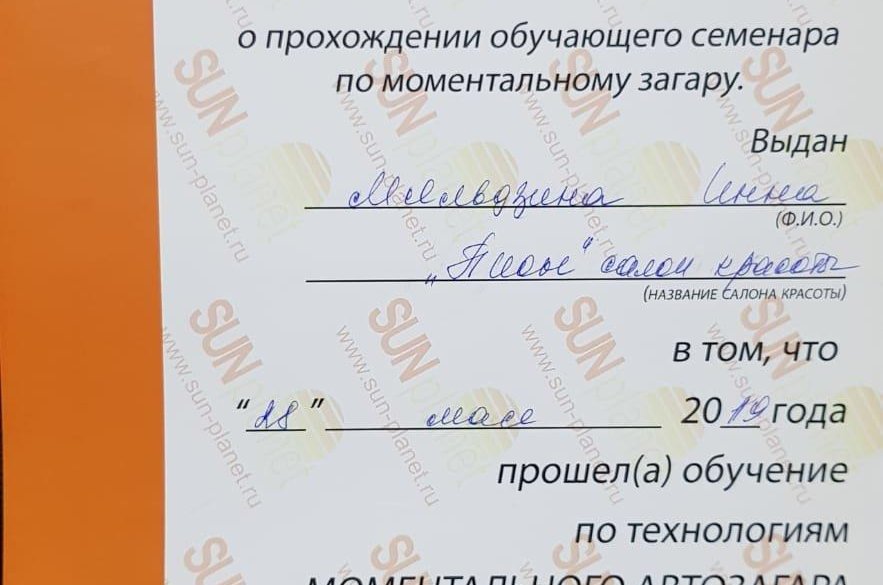 о прохождении обучающего семенара
по моментальному загару.
Выдан
Инна
(Ф.И.О.)
салон красоты
(НАЗВАНИЕ САЛОНА КРАСОТЫ)
в том, что
"28" мая 2019 года
прошел(а) обучение
по технологиям
МОМЕНТАЛЬНОГО АВТОЗАГАРА
SUN planet
www.sun-planet.ru